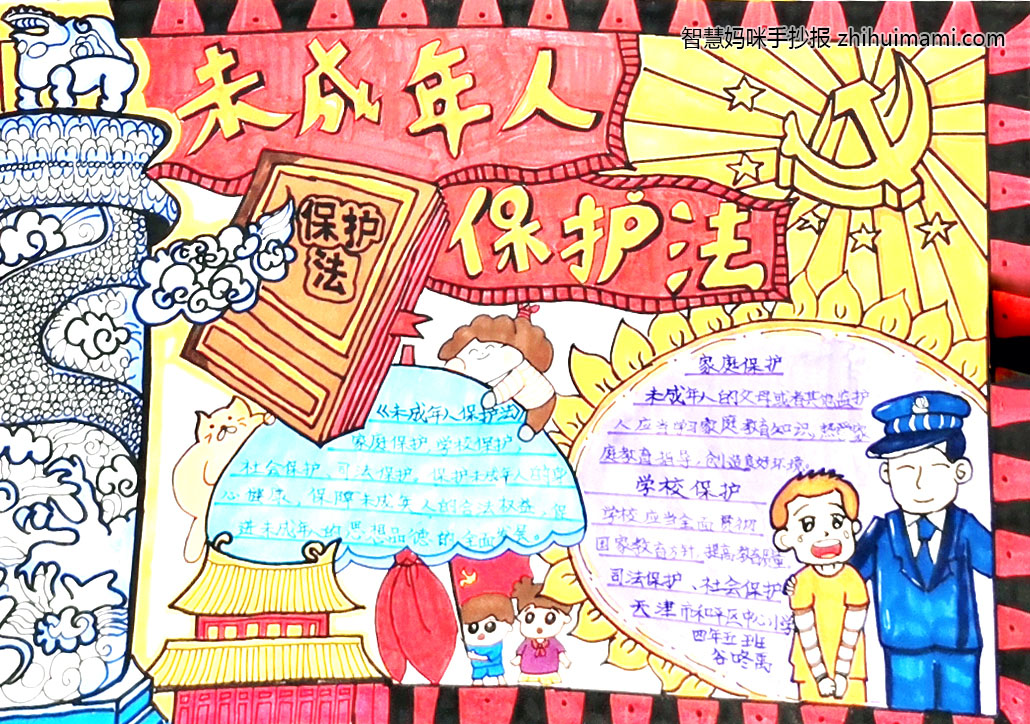 智慧妈咪手抄报 zhihuimami.com
未成年人
保护法
保护
法
《未成年人保护法》
家庭保护,学校保护,
社会保护、司法保护。保护未成年人的身
心健康,保障未成年人的合法权益,促
进未成年人的思想品德的全面发展。
家庭保护
未成年人的父母或者其他监护
人应当学习家庭教育知识,接受家
庭教育指导,创造良好环境。
学校保护
学校应当全面贯彻
国家教育方针,提高教育质量,
司法保护、社会保护
天津市和平区中心小学
四年五班